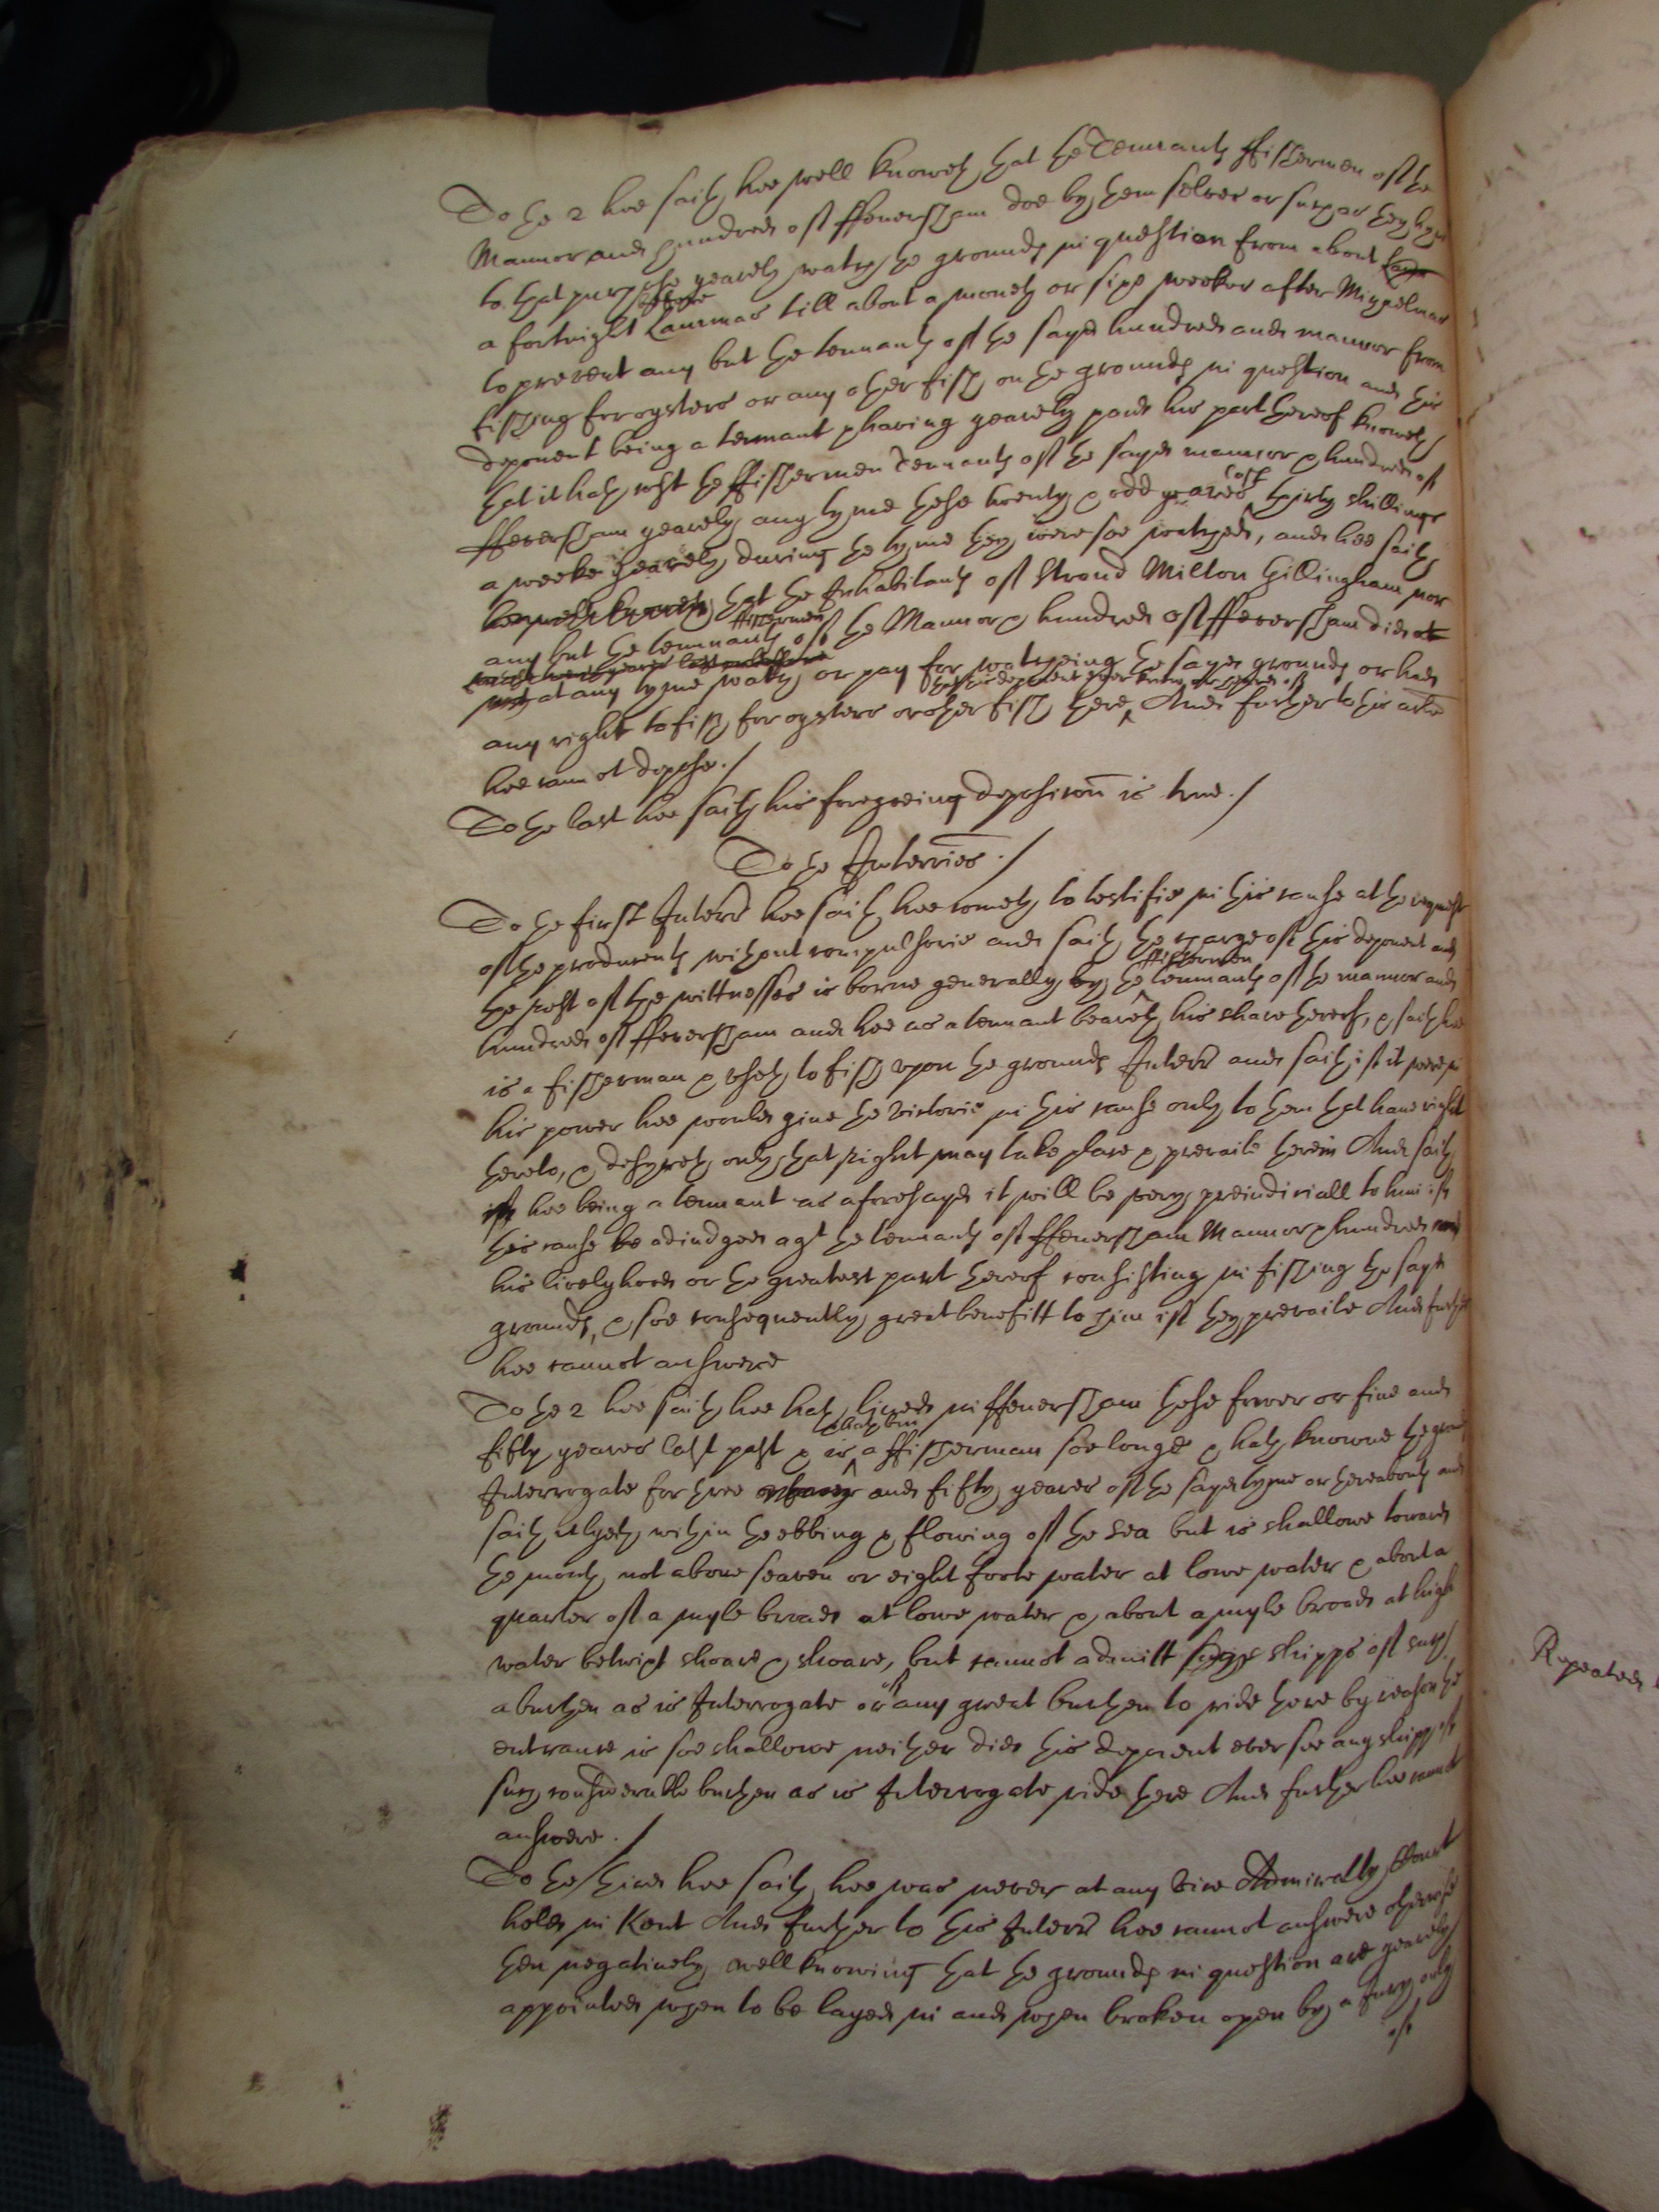 To the 2 hee saith hee well knoweth that the Tennants ffishermen of the
Mannor and hundred of ffeversham doe by them selves or such as they hyre
to that purpose yearely watch the grounds in question from about
a fortnight before Lammas till about a moneth or sixe weekes after Michelmas
to prevent any but the tennants of the sayd hundred and mannor from
fishing for oysters or any other fish on the grounds in question and this
deponent being a tennant & having yearely paid his part thereof knoweth
that it hath cost the ffishermen Tennants of the sayd mannor & hundred of
ffeversham yearely any tyme these twenty & odd yeares last thirty shillings
a weeke yearely during the tyme they were soe watched, and hee saith
hee well knoweth that the Inhabitants of Strood Milton Gillingham nor
any but the ffishermen tennants of the Mannor & hundred of ffeversham did
at any tyme watch or pay for watcheing the sayd grounds or had
any right to fish for oysters or other fish there that this deponent ever knew or heard of And further to this article
hee cannot depose./
To the last hee saith his foregoeing deposicon is true./
To the Interries./
To the first Interrie hee saith hee cometh to testifie in this cause at the request
of the producents without compulsorie and saith the charge of this deponent and
the rest of the wittnesses is borne generally by the ffishermen tennants of the mannor and
hundred of ffeversham and hee as a tennant beareth his share thereof, & saith hee
is a fisherman & useth to fish upon the grounds Interrie and saith if it were in
his power hee would give the victorie in this cause only to them that have right
thereto, & desyreth only that right may take place & prevaile therein And saith
hee being a tennant as aforesayd it will be very preiudiciall to him if
this cause be adiudged agt the tennants of ffeversham Mannor & hundred
his livelyhood or the greatest part thereof consisting in fishing the sayd
grounds, & soe consequently great benefitt to him if they prevaile And further
hee cannot answere
To the 2 hee saith hee hath lived in ffeversham these fower or five and
fifty yeares last past & is & hath bin a ffisherman soe longe & hath knowne the ground
Interrogate for three and fifty yeares of the sayd tyme or thereabouts and
saith it lyeth within the ebbing & flowing of the Sea but is shallowe towards
the mouth not above seaven or eight foote water at lowe water & about a
quarter of a myle broad at lowe water & about a myle broad at high
water betwixt shoare & shoare, but cannot admitt shipps of such
a burthen as is Interrogate or of any great burthen to ride there by reason the
entrance is soe shallowe neither did this deponent ever see any shipp of
such considerable burthen as is Interrogate ride there And further hee cannot
answere./
To the third hee saith hee was never at any Vice Admiralty Court
held in Kent And further to this Interrie hee cannot answere otherwise
then negatively well knowing that the grounds in question are yearely
appointed when to be layed in and when broken open by a Jury only
of
Repeated